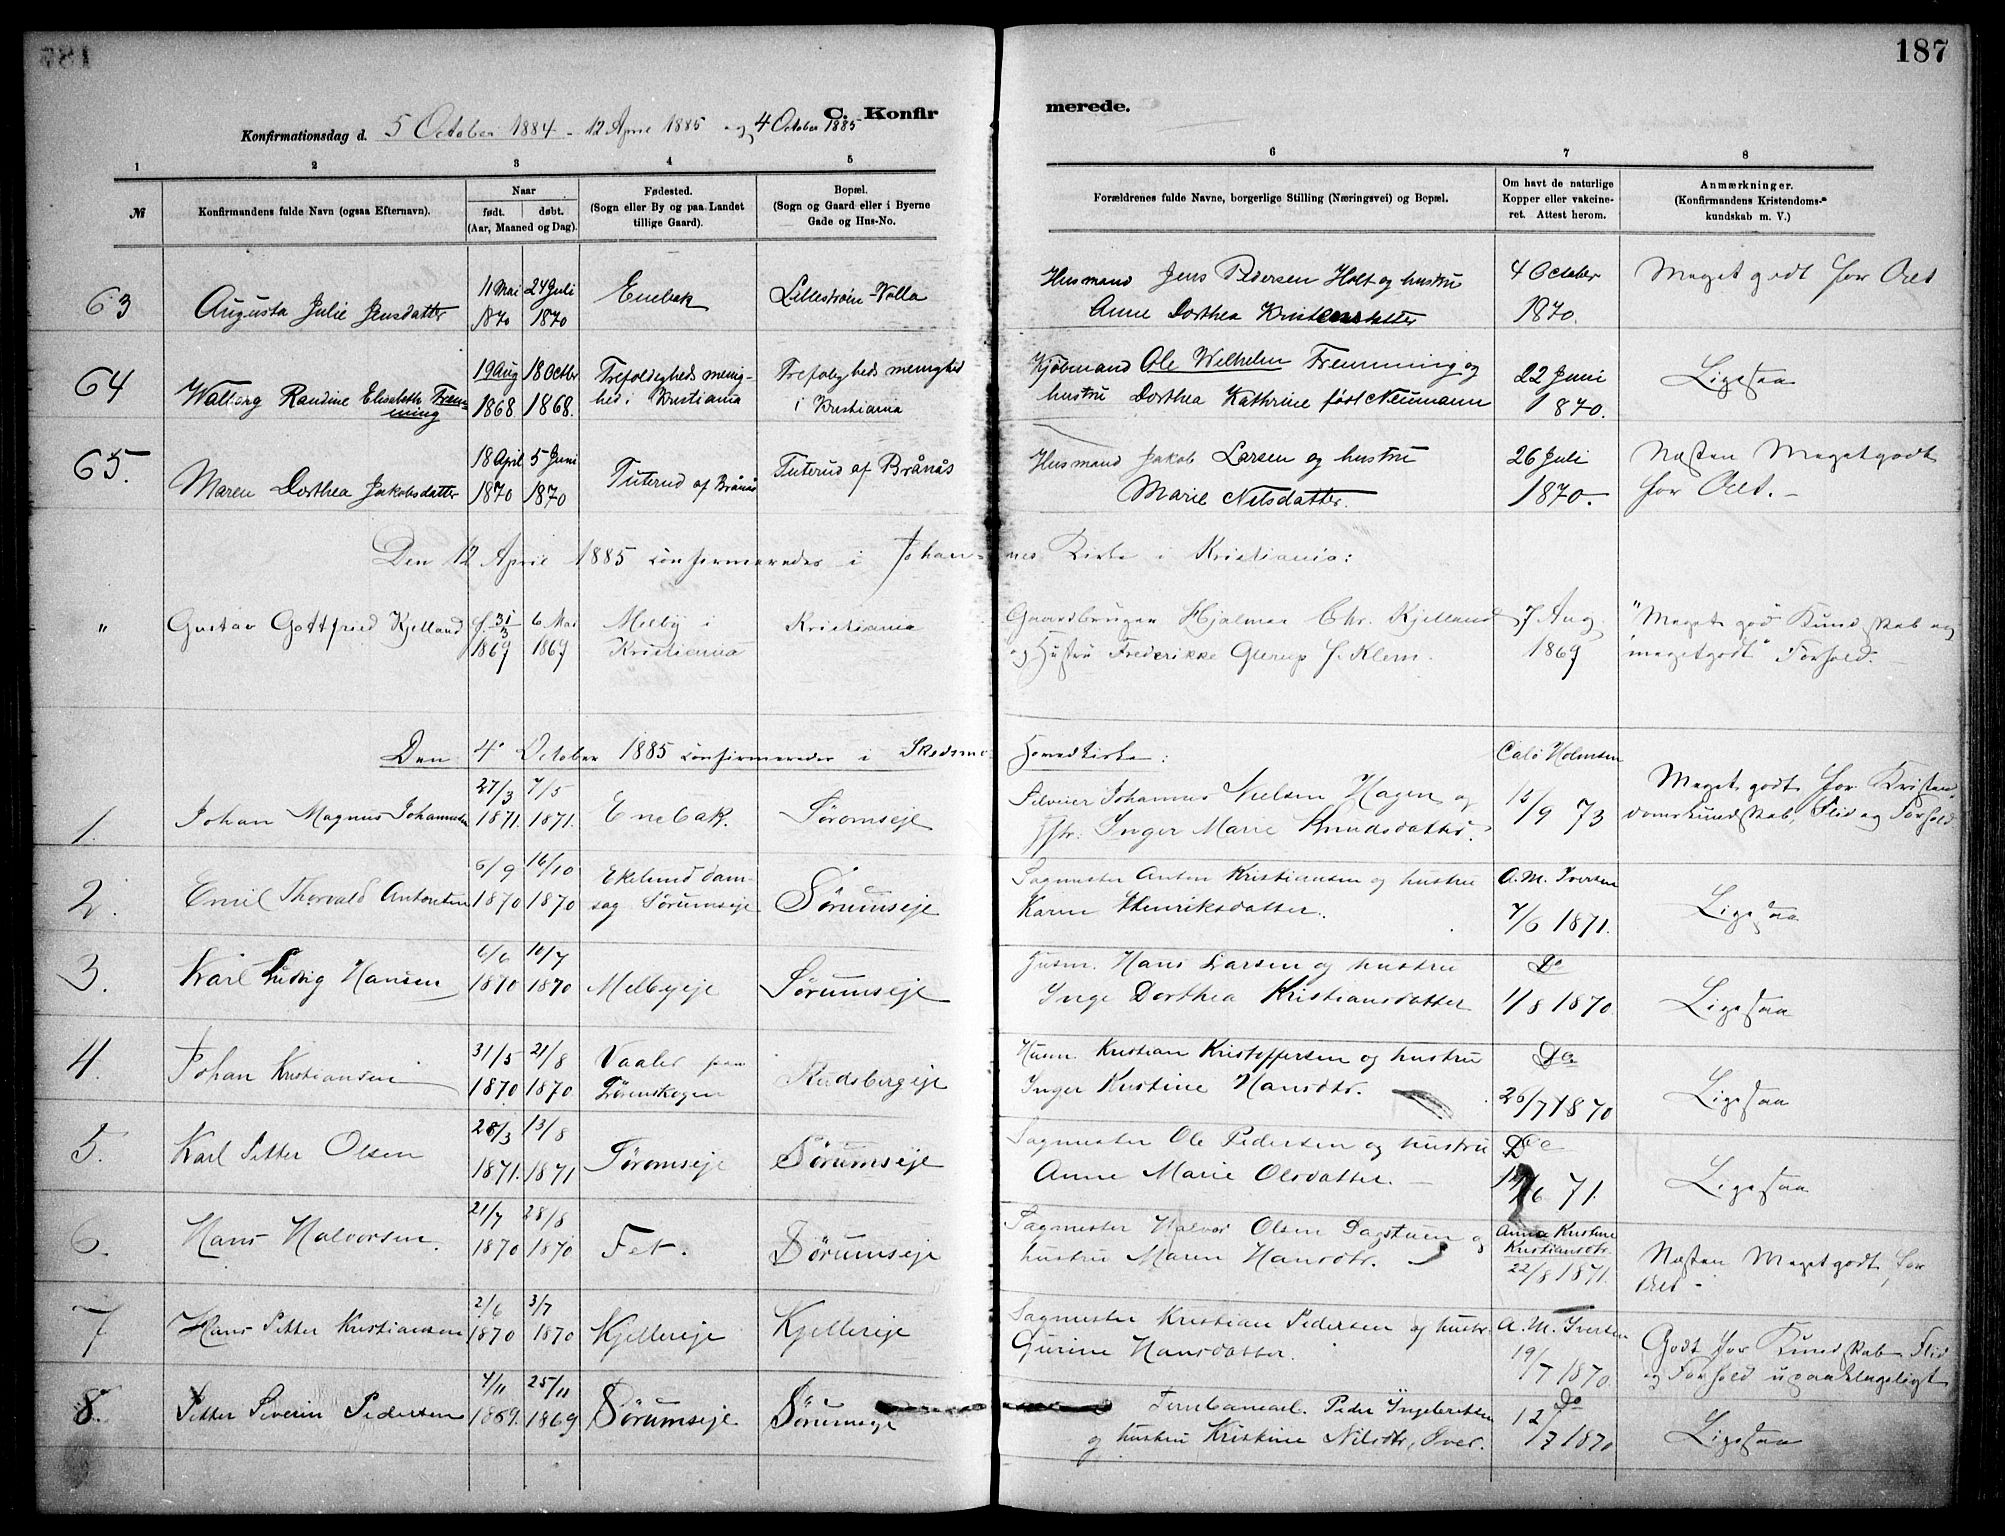 187
C. Konfir
merede.
Konfirmationsdag d. 5 October 1884 - 12 April 1885 og 4 October 1885
1 2 3 4 5 6 7 8
№
Konfirmandens fulde Navn (ogsaa Efternavn).
Naar
født. døbt.
(Aar, Maaned og Dag).
Fødested.
(Sogn eller By og paa Landet
tillige Gaard).
Bopæl.
(Sogn og Gaard eller i Byerne
Gade og Hus-No.
Forældrenes fulde Navne, borgerlige Stilling (Næringsvei) og Bopæl.
Om havt de naturlige
Kopper eller vakcine-
ret. Attest herom.
Anmærkninger.
(Konfirmandens Kristendoms-
kundskab m. V.)
63 Augusta Julie Jensdatter
11 Mai 1870
24 Juli 1870
Enebak
Lillestrøm-Volla
Husmand Jens Pedersen Holt og hustru
Anne Dorthea Kristensdatter
4 October
1870.
Meget godt for Alt
64 Walborg Randine Elisabeth Frem-
ming
19 Aug 1868
18 Octbr 1868.
Trefoldigheds menig-
hed i Kristiania
Trefoligheds menighed
i Kristiania
Kjøbmand Ole Wilhelm Fremming og
hustru Dorthea Kathrine født Neumann
22 Juni
1870.
Ligesaa
65. Maren Dorthea Jakobsdatter
18 April 1870
5 Juni 1870
Tuterud af Brånås
Tuterud af Brånås
Husmand Jakob Larsen og hustru
Marie Nilsdatter.
26 Juli
1870.-
Næsten Meget godt
for Alt.-
Den 12 April 1885 confirmeredes i Johan-nes Kirke i Kristiania:
" Gustav Gottfried Kjelland
f. 31/3 1869
6 Mai 1869
Melby i
Kristiania
Kristiania
Gaardbruger Hjalmar Chr. Kjelland
og Hustru Frederikke Glerup f. Klem.
7 Aug.
1869
"Meget god" Kundskab og
"meget godt" Forhold.
Den 4de October 1885 confirmeredes i Skedsmo Hovedkirke:
1. Johan Magnus Johannesen
27/3 1871.
7/5 1871.
Enebak.
Sørumseje
Johannes Nielsen Hagen og
Hstr. Inger Marie Knudsdatter.
Holmsen
/9 73
Meget godt for Kristen-
domskundskab, Flid og Forhold
2. Emil Thorvald Antonsen
6/9 1870
16/10 1870
Ekelund dam-
sag Sørumseje
Sørumseje
Sagmester Anton Kristiansen og hustru
Karen Henriksdatter.
A. M. Iversen
7/6 1871.
Ligesaa
3. Karl Ludvig Hansen
6/6 1870
10/7 1870
Melbyeje
Sørumseje
Husm. Hans Larsen og hustru
Inge Dorthea Kristiansdatter
Do
1/8 1870.
Ligesaa
4. Johan Kristiansen
31/5 1870
21/8 1870.
Vaaler paa
Lørenskogen
Rudsbergeje
Husm. Kristian Kristoffersen og hustru
Inger Kristine Hansdtr.
Do
26/7 1870
Ligesaa
5. Karl Petter Olsen
28/3 1871.
13/8 1871
Sørumseje
Sørumseje
Sagmester Ole Pedersen og hustru
Anne Marie Olsdatter. -
Do
/6 71.
Ligesaa
6. Hans Halvorsen.
21/7 1870
28/8 1870
Fet.
Sørumseje
Sagmester Halvor Olsen Dagstuen og
hustru Maren Hansdtr.
Anne Kristine
Kristiansdtr.
22/8 1871.
Næsten Meget godt for
Alt -
7 Hans Petter Kristiansen
2/6 1870
3/7 1870
Kjellereje
Kjellereje
Sagmester Kristian Pedersen og hustr.
Gurine Hansdatter.
A. M. Iversen
19/7 1870.
Godt for Kundskab, Flid
og Forhold upaaklageligt
8. Petter Severin Pedersen
7/11 1869.
25/11 1869
Sørumseje
Sørumseje
Jernbanearb. Peder Ingebretsen
og hustru Kristine Nilsdtr, Iver.
Do
12/7 1870
Ligesaa